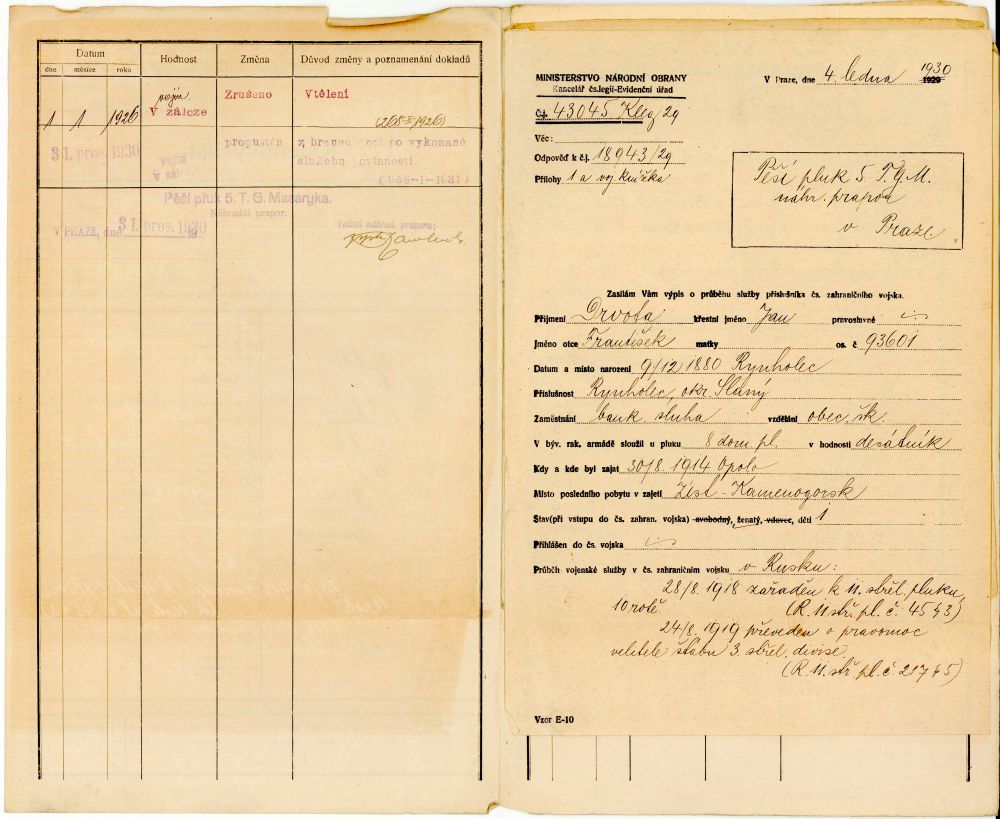 Datum
Hodnost
Změna
Důvod změny a poznamenání dokladů
dne měsíce roku
vojín
1 1 1926 V záloze
Zrušeno
Vtělení
31. pros. 1930
vojín
v záloze
propuštěn
z branné moci po vykonané
služební povinnosti
Pěší pluk 5. T. G. Masaryka.
Náhradní prapor.
V PRAZE, dne 31. pros. 1930 19
Velitel náhrad. praporu:
MINISTERSTVO NÁRODNÍ OBRANY
Kancelář čs.legií-Evidenční úřad
V Praze, dne 4. ledna 1930
1929
Č.j. 43045 Kleg 29
Věc:
Odpověď k č.j. 18943/29
Přílohy 1 a voj knížka
Pěší pluk 5 T.G.M.
náhr. prapor
v Praze.
Zasílám Vám výpis o průběhu služby příslušníka čs. zahraničního vojska.
Příjmení Drvota křestní jméno Jan pravoslavné
Jméno otce František matky os. č. 93601
Datum a místo narození 9/12 1880 Rynholec
Příslušnost Rynholec, okr. Slaný
Zaměstnání bank. sluha vzdělání obec. šk.
V býv. rak. armádě sloužil u pluku 8 dom. pl. v hodnosti desátník
Kdy a kde byl zajat 30/8. 1914 Opolo
Místo posledního pobytu v zajetí Üst-Kamenogorsk
Stav(při vstupu do čs. zahran. vojska) svobodný, ženatý, vdovec, děti 1
Přihlášen do čs. vojska
Průběh vojenské služby v čs. zahraničním vojsku v Rusku:
28/8. 1918 zařaděn k 11. střel. pluku,
10 rotě. (R. 11. stř. pl. č. 4543)
24/8. 1919 převeden v pravomoc
velitele štabu 3. střel. divise.
(R. 11. stř. pl. č. 21745)
Vzor E-10